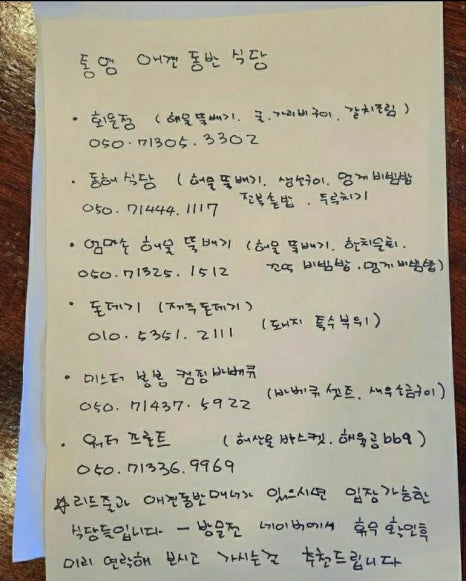 통영 애견 동반 식당
• 회운정 (해물뚝배기. 굴.가리비구이. 갈치조림)
050.71305.3302
• 동해식당 (해물뚝배기. 생선구이. 멍게비빔밥
050.71444.1117 전복솥밥. 두루치기
• 엄마손 해물 뚝배기 (해물 뚝배기. 한치물회.
050.71325.1512 꼬막 비빔밥. 멍게비빔밥)
• 돈데기 (제주돈데기)
010.5351.2111 (돼지 특수부위)
• 미스터 봉봉 캠핑바베큐
050.71437.5922 (바베큐셋트. 새우소금구이)
• 워터 프론트 (해산물 바스켓. 해물공bb9)
050.71336.9969
☆리드줄과 애견동반매너가 있으시면 입장가능한
식당들입니다 - 방문전 네이버에서 휴무 확인후
미리 연락해 보시고 가시는걸 추천드립니다